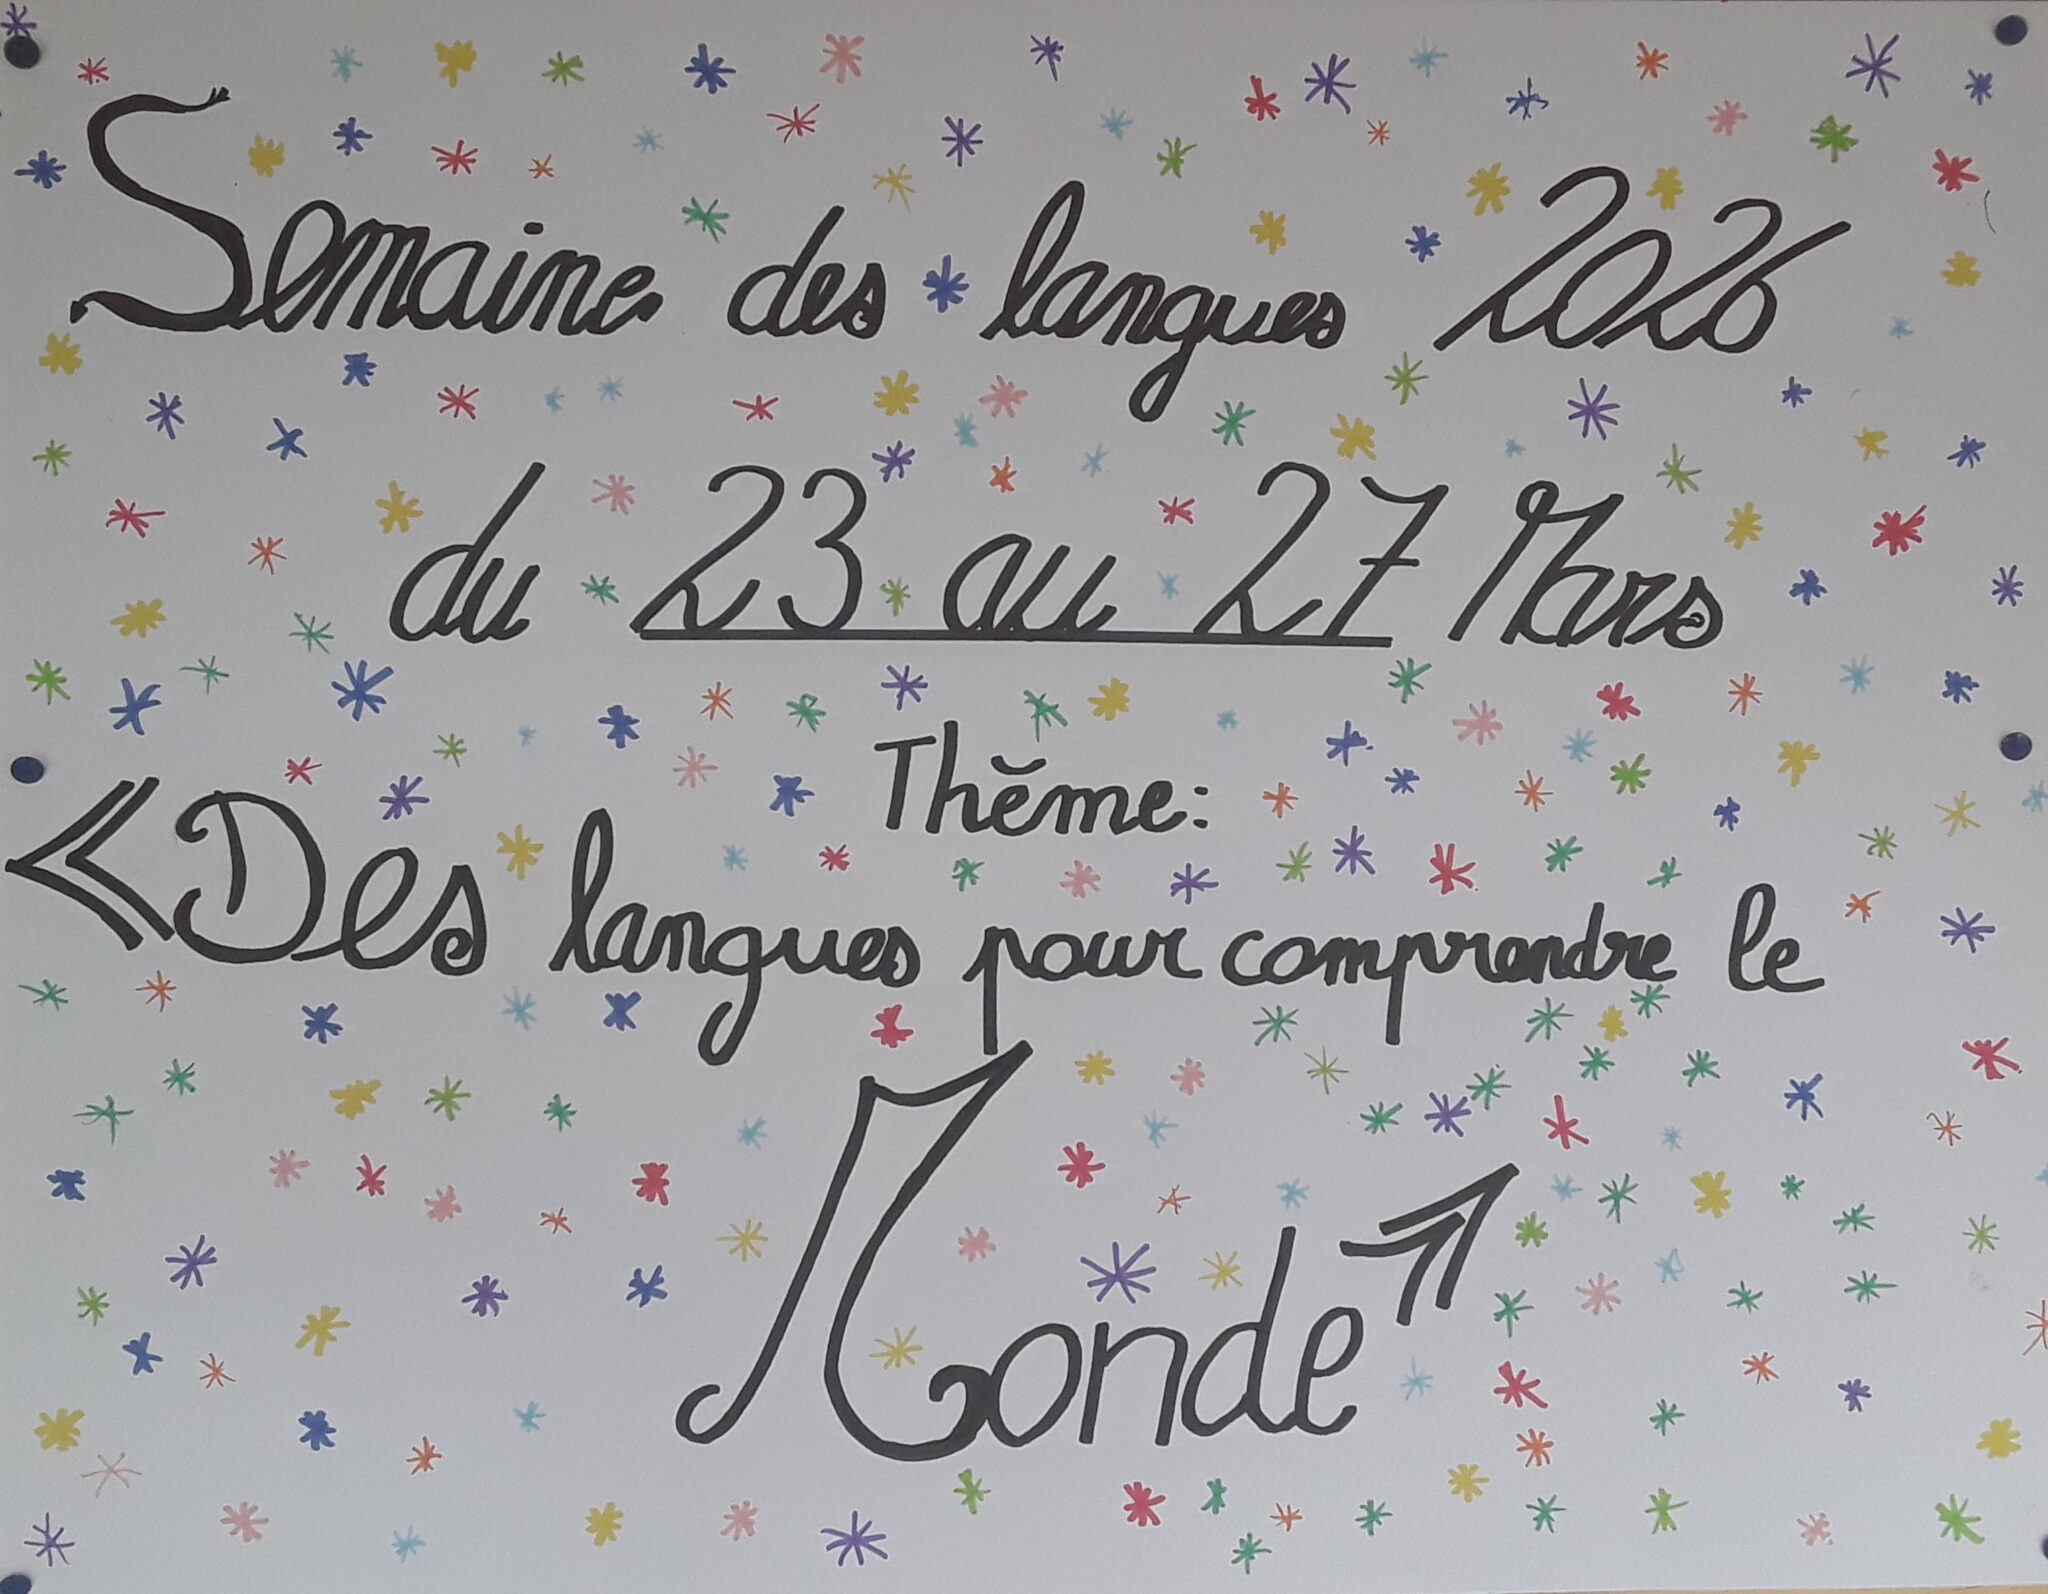 Semaine des langues 2026
du 23 au 27 Mars
Thĕme:
«Des langues pour comprendre le
Monde»